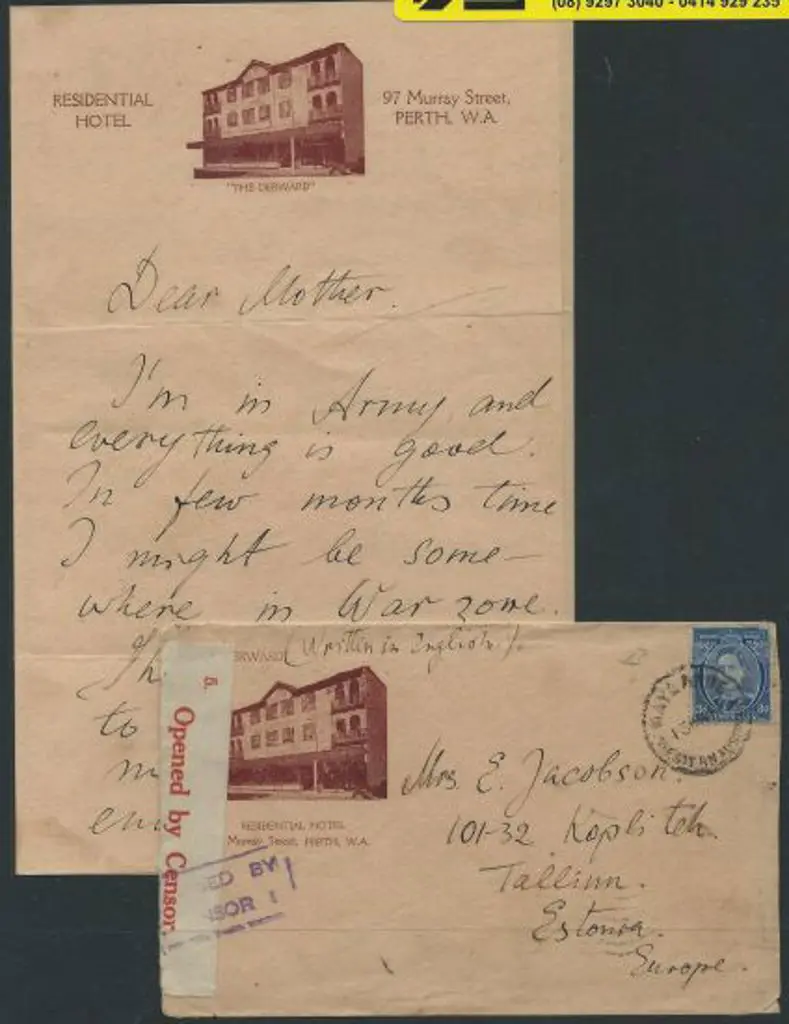 (08) 9297 3040 - 0414 929 235
RESIDENTIAL
HOTEL
97 Murray Street,
PERTH, W.A.
"THE DERWARD"
Dear Mother.
I'm in Army, and
everything is good.
In few months time
I might be some-
where in War zone.
Th
to
m
(Written in English).
ERWARD
5.
Opened by Censor.
RESIDENTIAL HOTEL
Murray Street, PERTH, W.A.
SED BY
NSOR 1
Mrs. E. Jacobson.
101-32 Kopli teh.
Tallinn.
Estonia.
Europe.